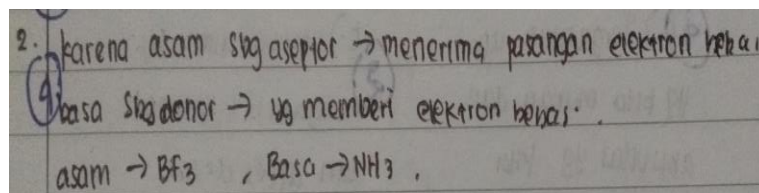 2. karena asam sbg aseptor → menerima pasangan elektron bebas
basa sbg donor → yg memberi elektron bebas.
asam → Bf3 , Basa → NH3 .